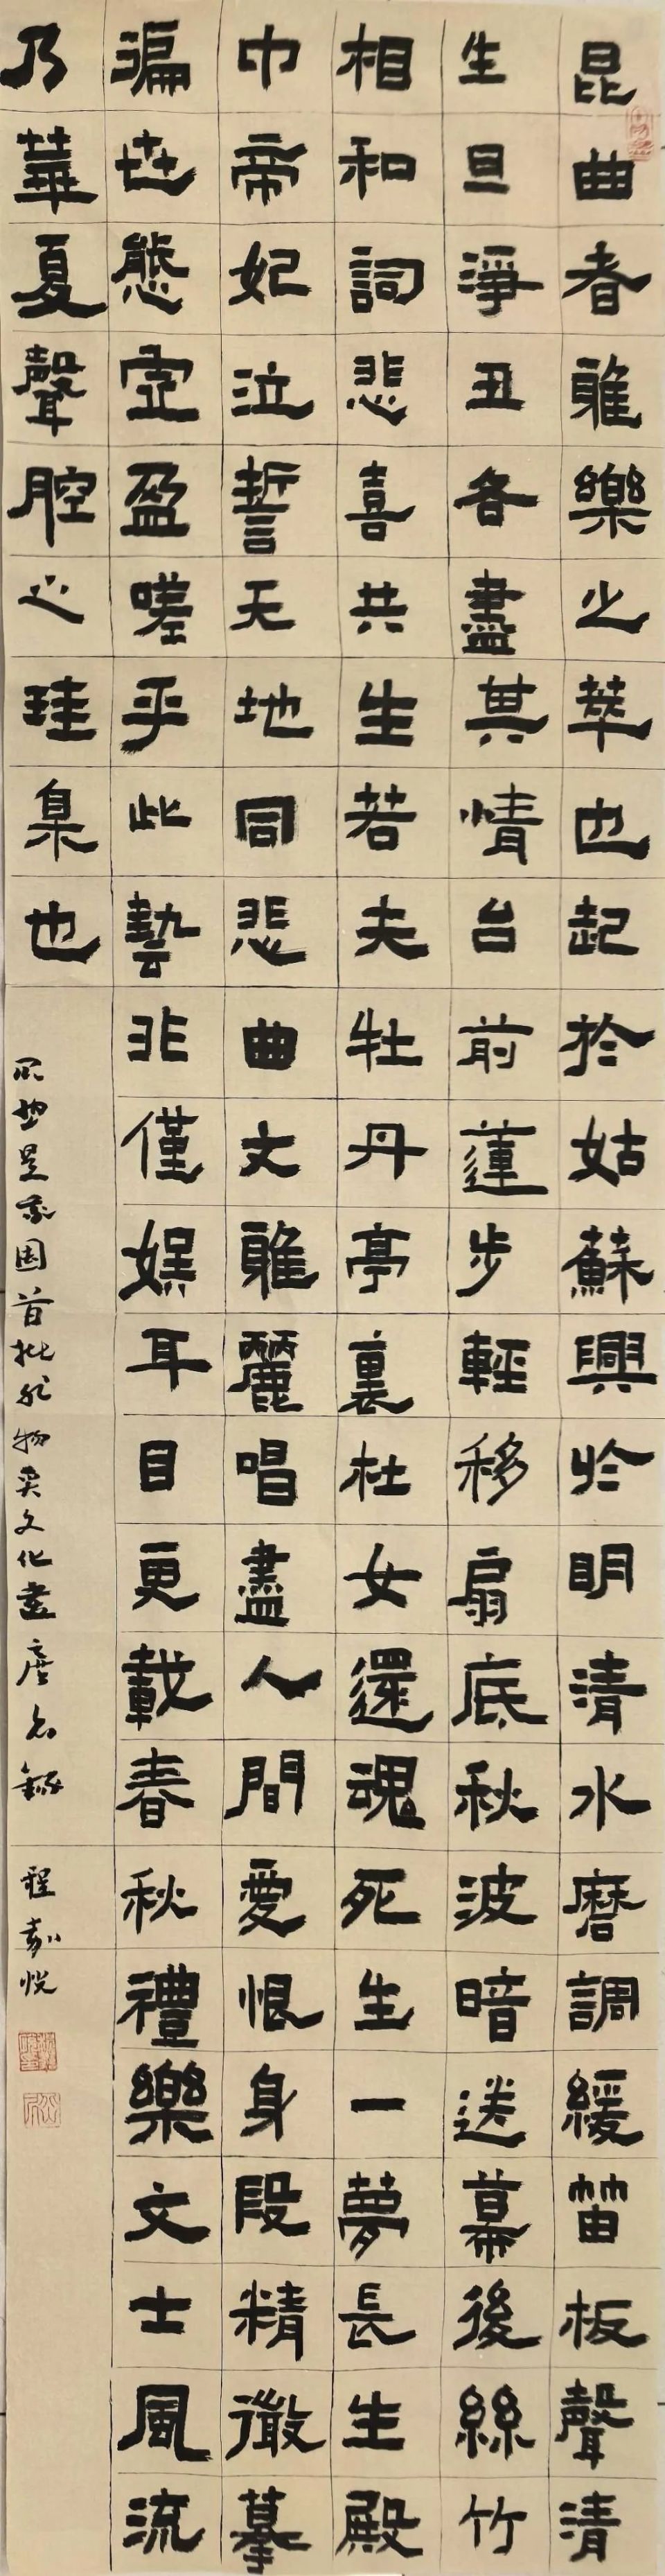 昆曲者雅樂之萃也起於姑蘇興於明清水磨調緩笛板聲清
生旦淨丑各盡其情台前蓮步輕移扇底秋波暗送幕後絲竹
相和詞悲喜共生若夫牡丹亭裏杜女還魂死生一夢長生殿
巾帝妃泣誓天地同悲曲文雅麗唱盡人間愛恨身段精徽摹
遍世態虛盈嗟乎此藝非僅娛耳目更載春秋禮樂文士風流
乃華夏聲腔之珪臬也
昆曲是我国首批非物质文化遗产名録
程嘉悦